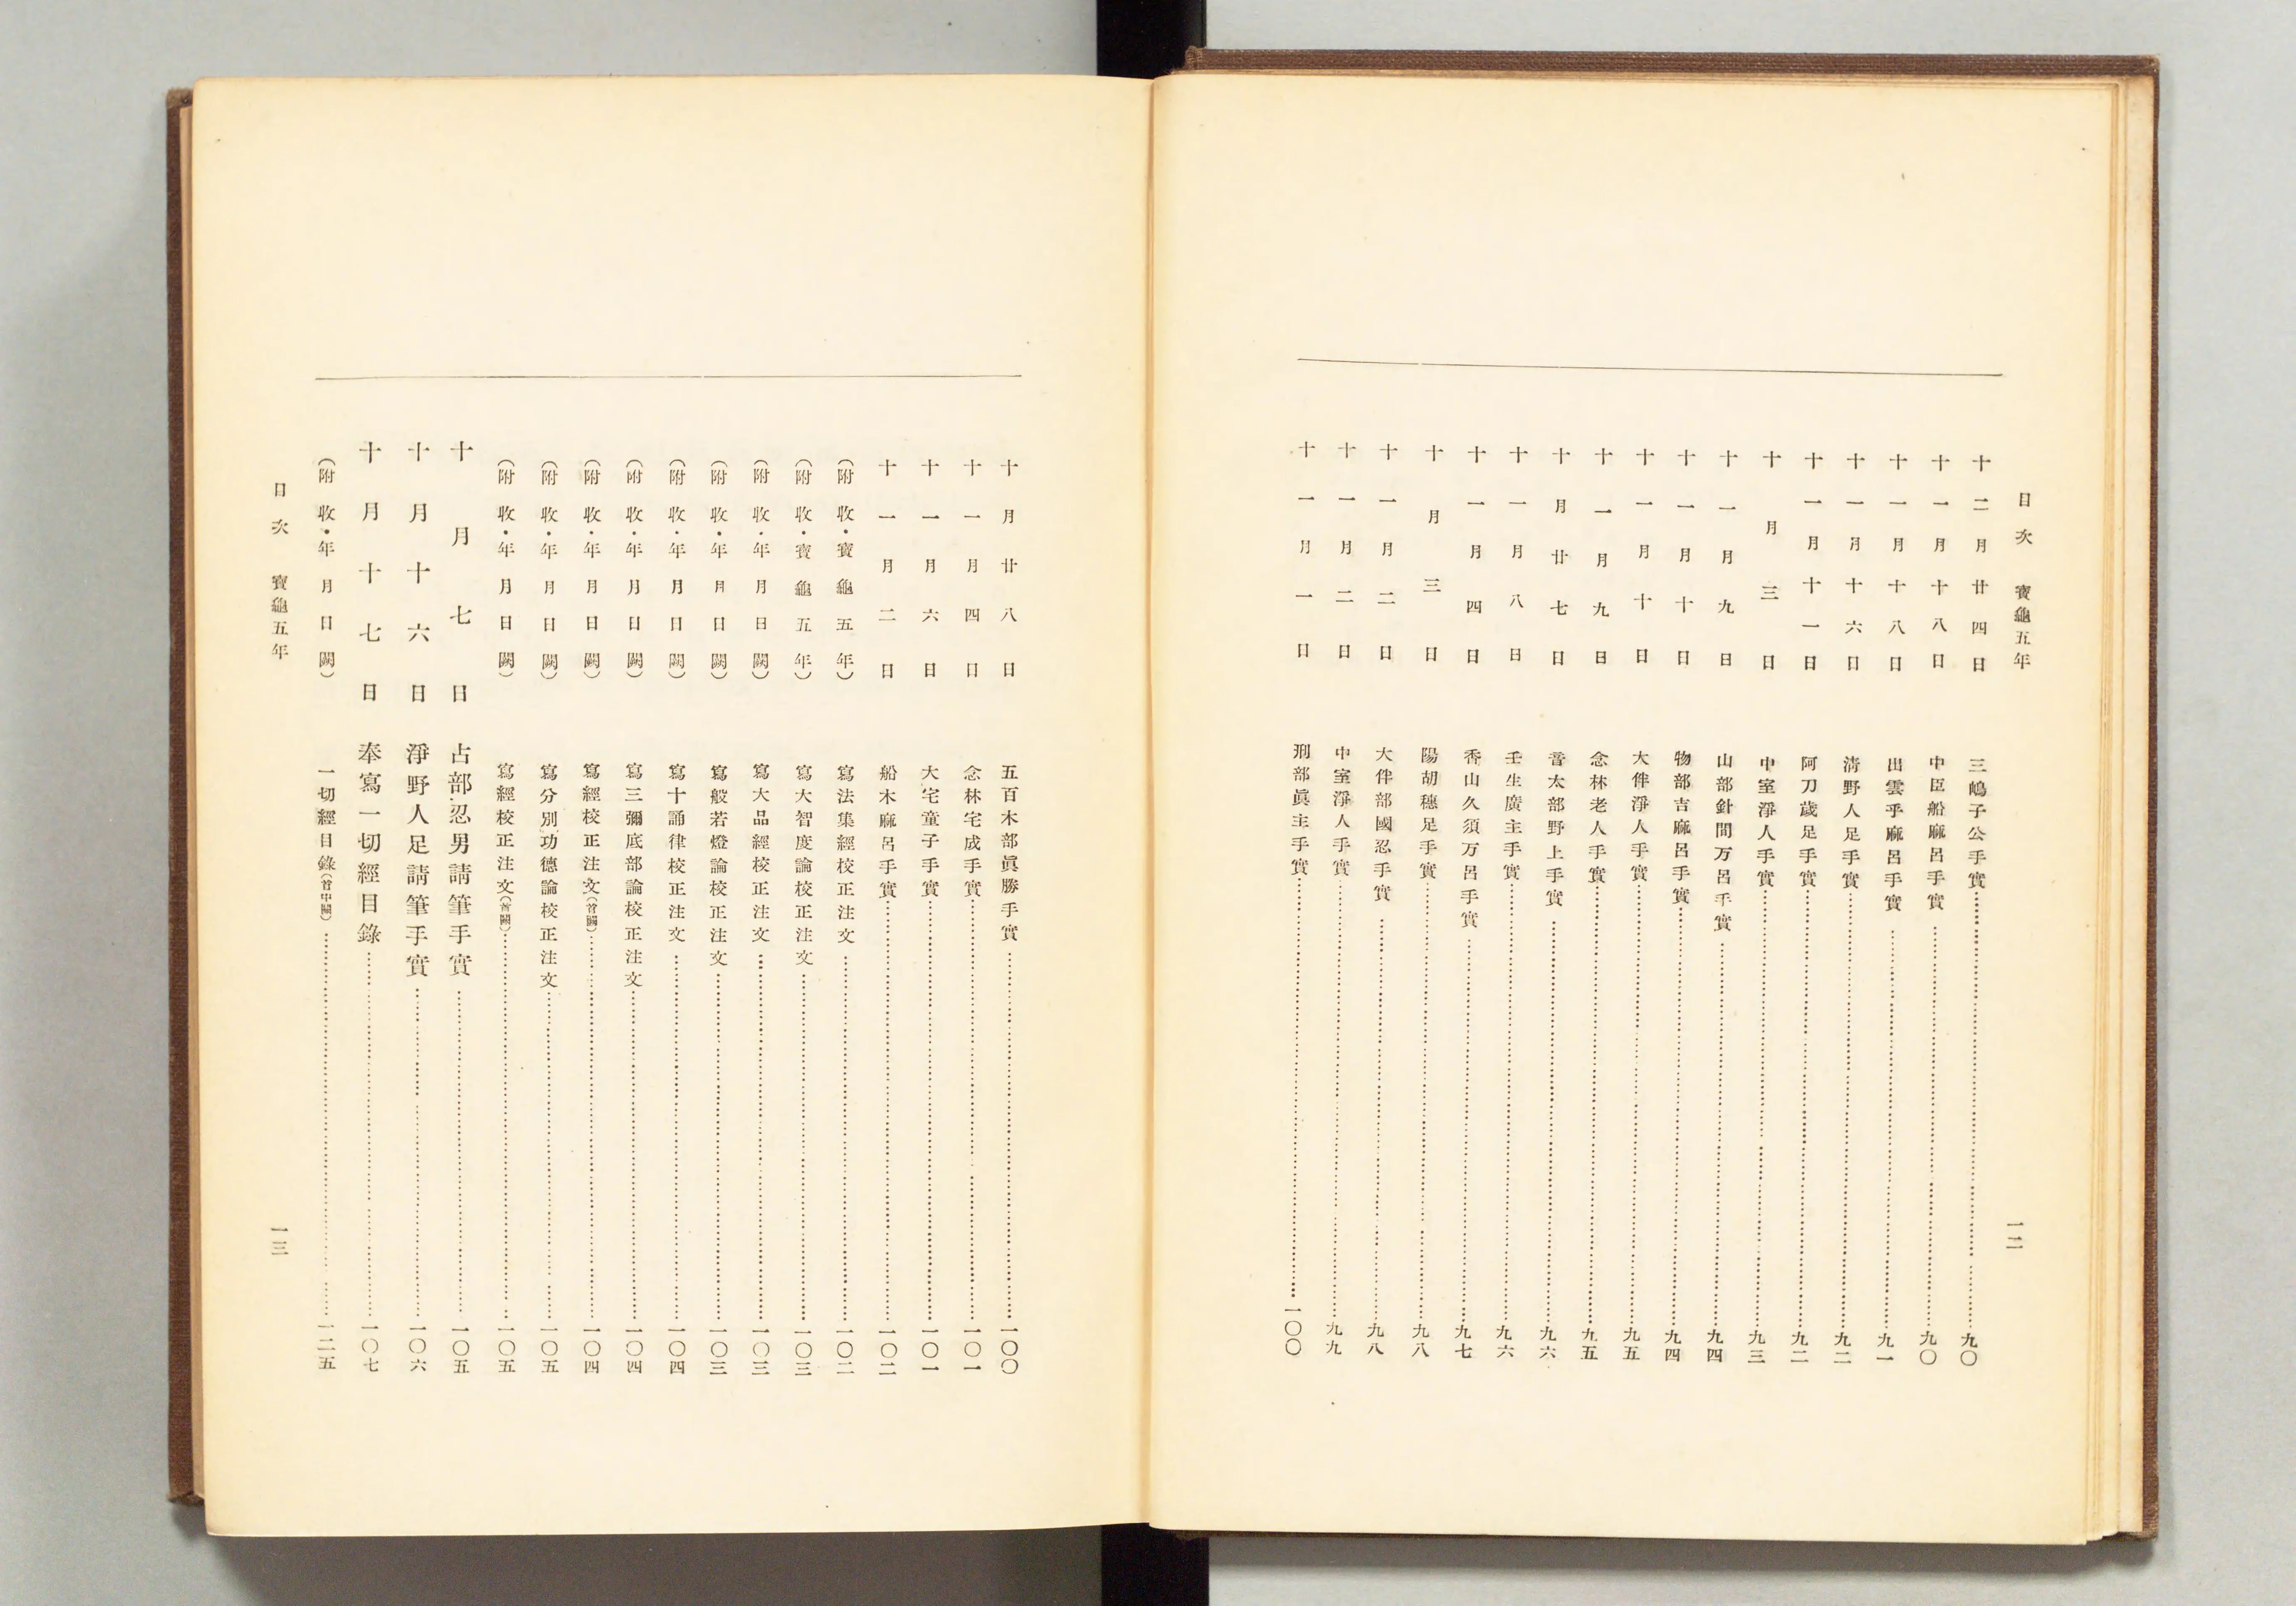 目次 寶龜五年 一二
十二月廿四日 三嶋子公手實……九〇
十一月十八日 中臣船麻呂手實……九〇
十一月十八日 出雲乎麻呂手實……九一
十一月十六日 清野人足手實……九二
十一月十一日 阿刀歲足手實……九二
十月三日 中室淨人手實……九三
十一月九日 山部針間万呂手實……九四
十一月十日 物部吉麻呂手實……九四
十一月十日 大伴淨人手實……九五
十一月九日 念林老人手實……九五
十月廿七日 音太部野上手實……九六
十一月八日 壬生廣主手實……九六
十一月四日 香山久須万呂手實……九七
十月三日 陽胡穗足手實……九八
十一月二日 大伴部國忍手實……九八
十一月二日 中室淨人手實……九九
十一月一日 刑部眞主手實……一〇〇
十月廿八日 五百木部眞勝手實……一〇〇
十一月四日 念林宅成手實……一〇一
十一月六日 大宅童子手實……一〇一
十一月二日 船木麻呂手實……一〇二
(附收・寶龜五年) 寫法集經校正注文……一〇二
(附收・寶龜五年) 寫大智度論校正注文……一〇三
(附收・年月日闕) 寫大品經校正注文……一〇三
(附收・年月日闕) 寫般若燈論校正注文……一〇三
(附收・年月日闕) 寫十誦律校正注文……一〇四
(附收・年月日闕) 寫三彌底部論校正注文……一〇四
(附收・年月日闕) 寫經校正注文(首闕)……一〇四
(附收・年月日闕) 寫分別功德論校正注文……一〇五
(附收・年月日闕) 寫經校正注文(首闕)……一〇五
十月七日 占部忍男請筆手實……一〇五
十月十六日 淨野人足請筆手實……一〇六
十月十七日 奉寫一切經目錄……一〇七
(附收・年月日闕) 一切經目錄(首中闕)……一二五
目次 寶龜五年 一三